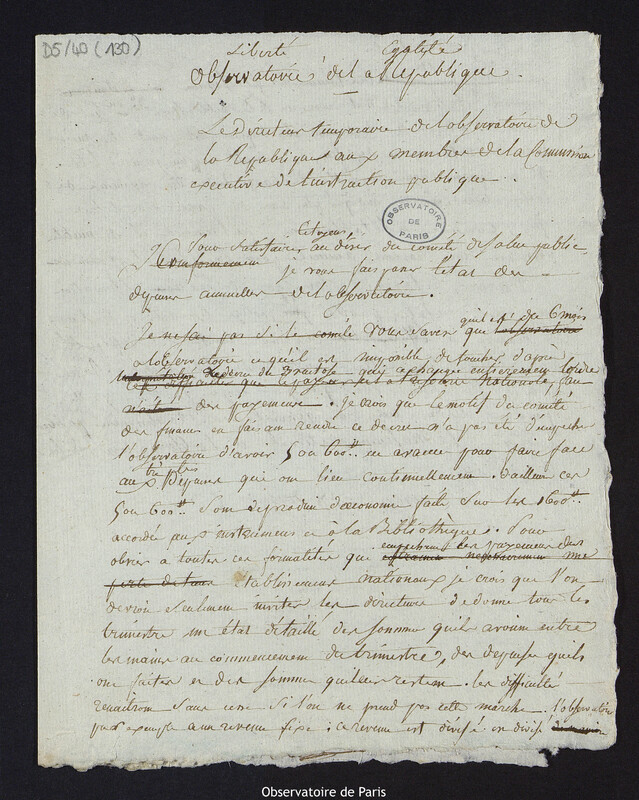 D5/40 (130)
Liberté Egalité
Observatoire de la Republique.
Le Directeur temporaire de l'observatoire de
la Republique aux membres de la Commission
executive de l'instruction publique.
OBSERVATOIRE
DE
PARIS
Citoyens
Pour satisfaire au désir du comité de salut public
je vous fais passer l'état des
depenses annuelles de l'observatoire.
Je ne sai pas si le comité vous savez que
qu'il est du 6 mois
a l'observatoire et qu'il est impossible de toucher d'après
le decret du 3 nivose qui a changé entierement l'ordre
des payemens. je crois que le motif du comité
des finances en faisant rendre ce decret n'a pas été d'empecher
l'observatoire d'avoir 5 ou 600tt en avance pour faire face
aux depenses qui ont lieu continuellement. d'ailleurs ces
5 ou 600tt sont le produit d'economies faites sur les 1600tt
accordé aux instrumens et à la Bibliothèque. Pour
obvier a toutes ces formalités qui empechent les payemens des
etablissemens nationaux je crois que l'on
devroit seulement inviter les directeurs de donner tous les
trimestre un état detaillé des sommes qu'ils avoient entre
les mains au commencement du trimestre, des depenses qu'ils
ont faites et des sommes qui leur restent. les difficultés
renaitront sans cesse si l'on ne prend pas cette marche. l'observatoire
par exemple a un revenu fixe; ce revenu est divisé en
Observatoire de Paris